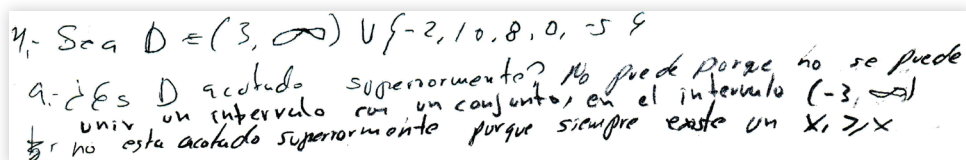 4.- Sea D = (3, ∞) U {-2, 10, 8, 0, -5}
a.- ¿Es D acotado superiormente? No puede porqe no se puede
unir un intervalo con un conjunto, en el intervalo (-3, ∞)
no esta acotado superiormente porque siempre existe un X, ≥ X